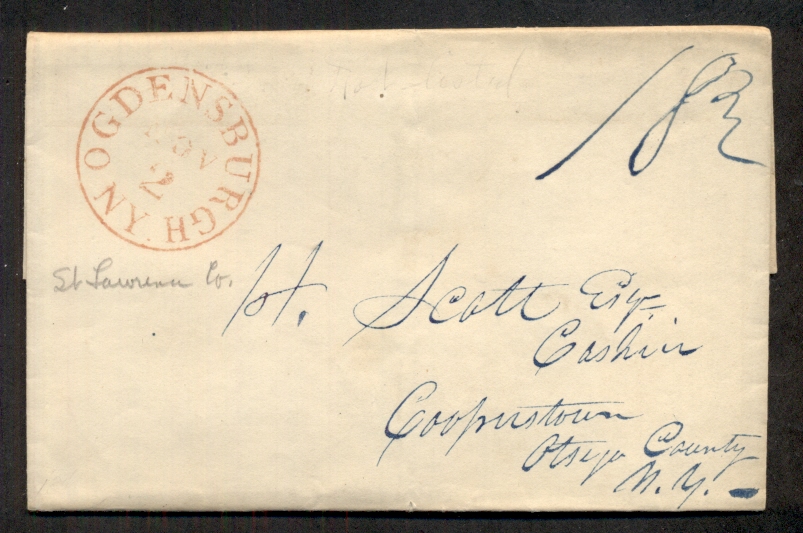 OGDENSBURGH NY
NOV
2
18¾
St Lawrence Co.
H. Scott Esq.
Cashier
Cooperstown
Otsego County
N.Y.